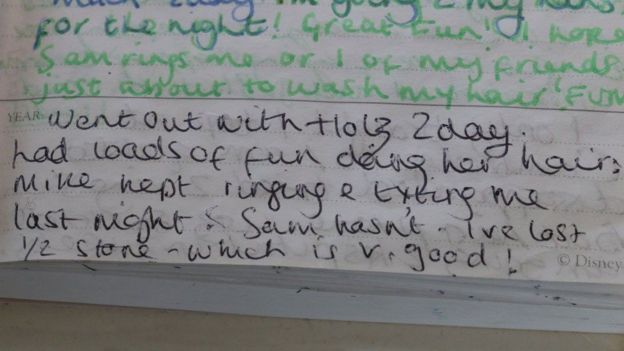 much 2day I'm going 2 my nans
for the night! Great fun! I hope
Sam rings me or 1 of my friends
just about to wash my hair 'FUN
YEAR
Went out with Holz 2day.
had loads of fun doing her hair:
Mike kept ringing & txting me
last night: Sam hasn't - I've lost
1/2 stone - which is v. good!
© Disney